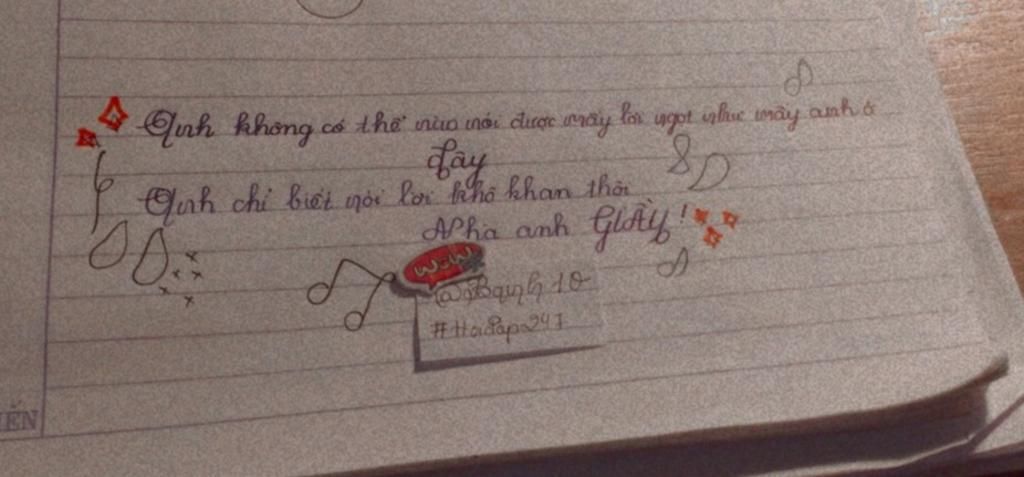 Anh không có thể nào nói được mấy lời ngọt như mấy anh ở
đây
Anh chỉ biết nói lời khô khan thôi
Nhà anh GIÀY!
WOW
#HaiPap24I
IẾN